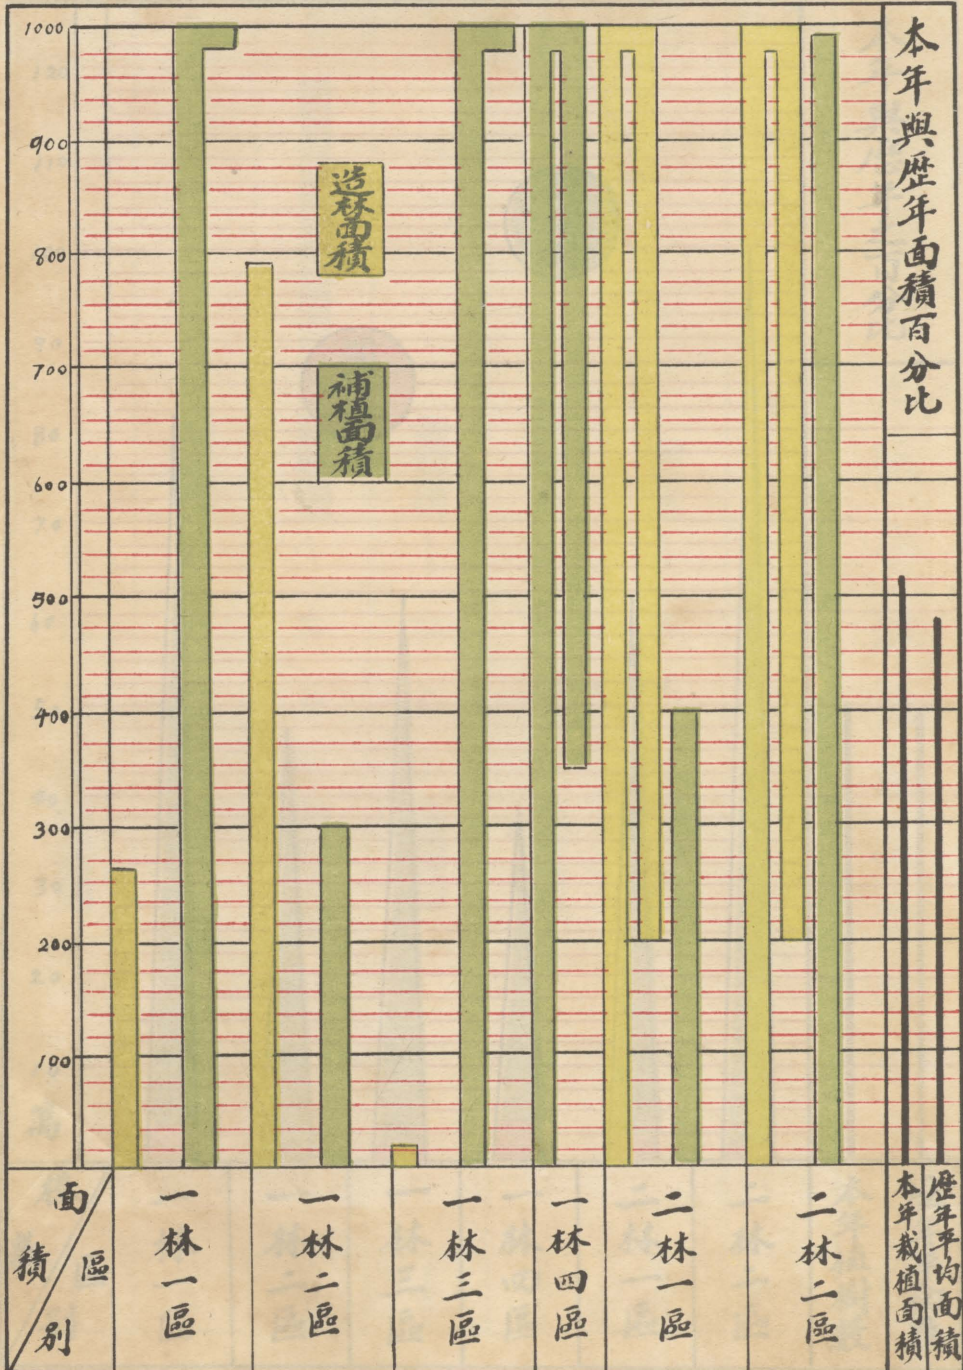 本年與歷年面積百分比
1000
900
800
700
600
500
400
300
200
100
造林面積
補植面積
面積
區別
一林一區
一林二區
一林三區
一林四區
二林一區
二林二區
本年栽植面積
歷年平均面積